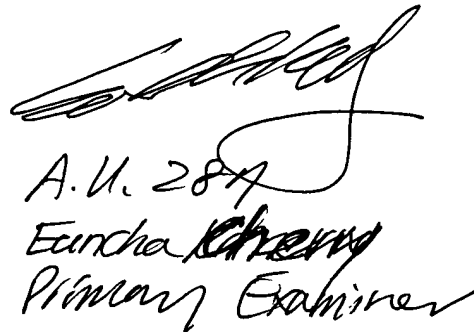 A.U. 287
Euncha Cherry
Primary Examiner